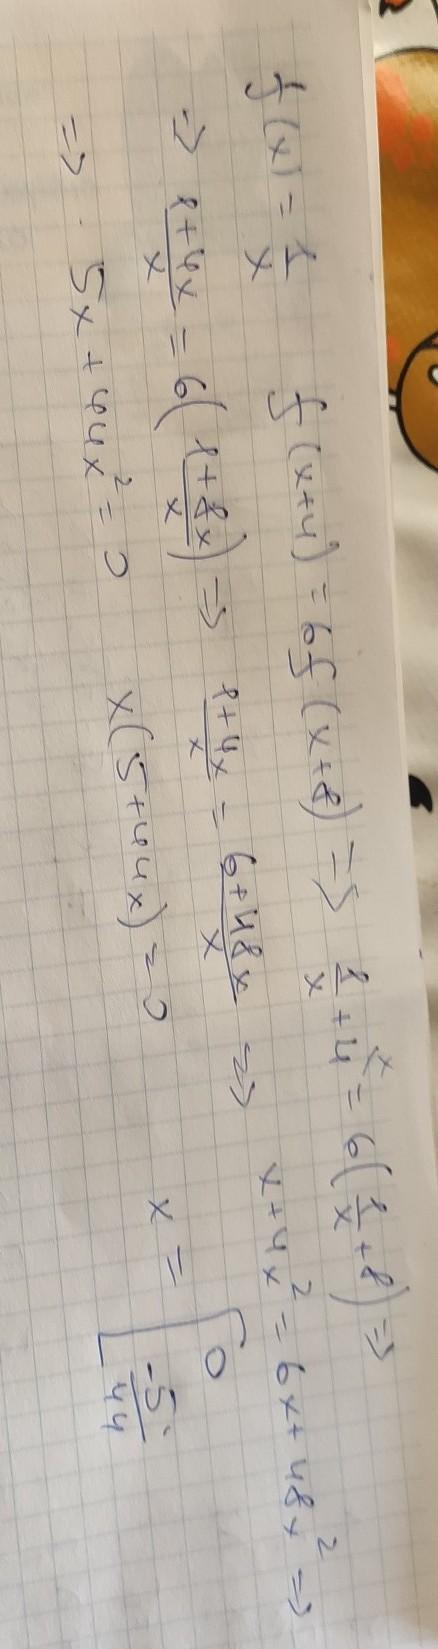 f(x) = 1/x    f(x+4) = 6f(x+8) => 1/x + 4 = 6(1/x + 8) =>
=> (1+4x)/x = 6((1+8x)/x) => (1+4x)/x = (6+48x)/x => x+4x² = 6x+48x² =>
=> 5x+44x² = 0    x(5+44x) = 0    x = [ 0
-5/44